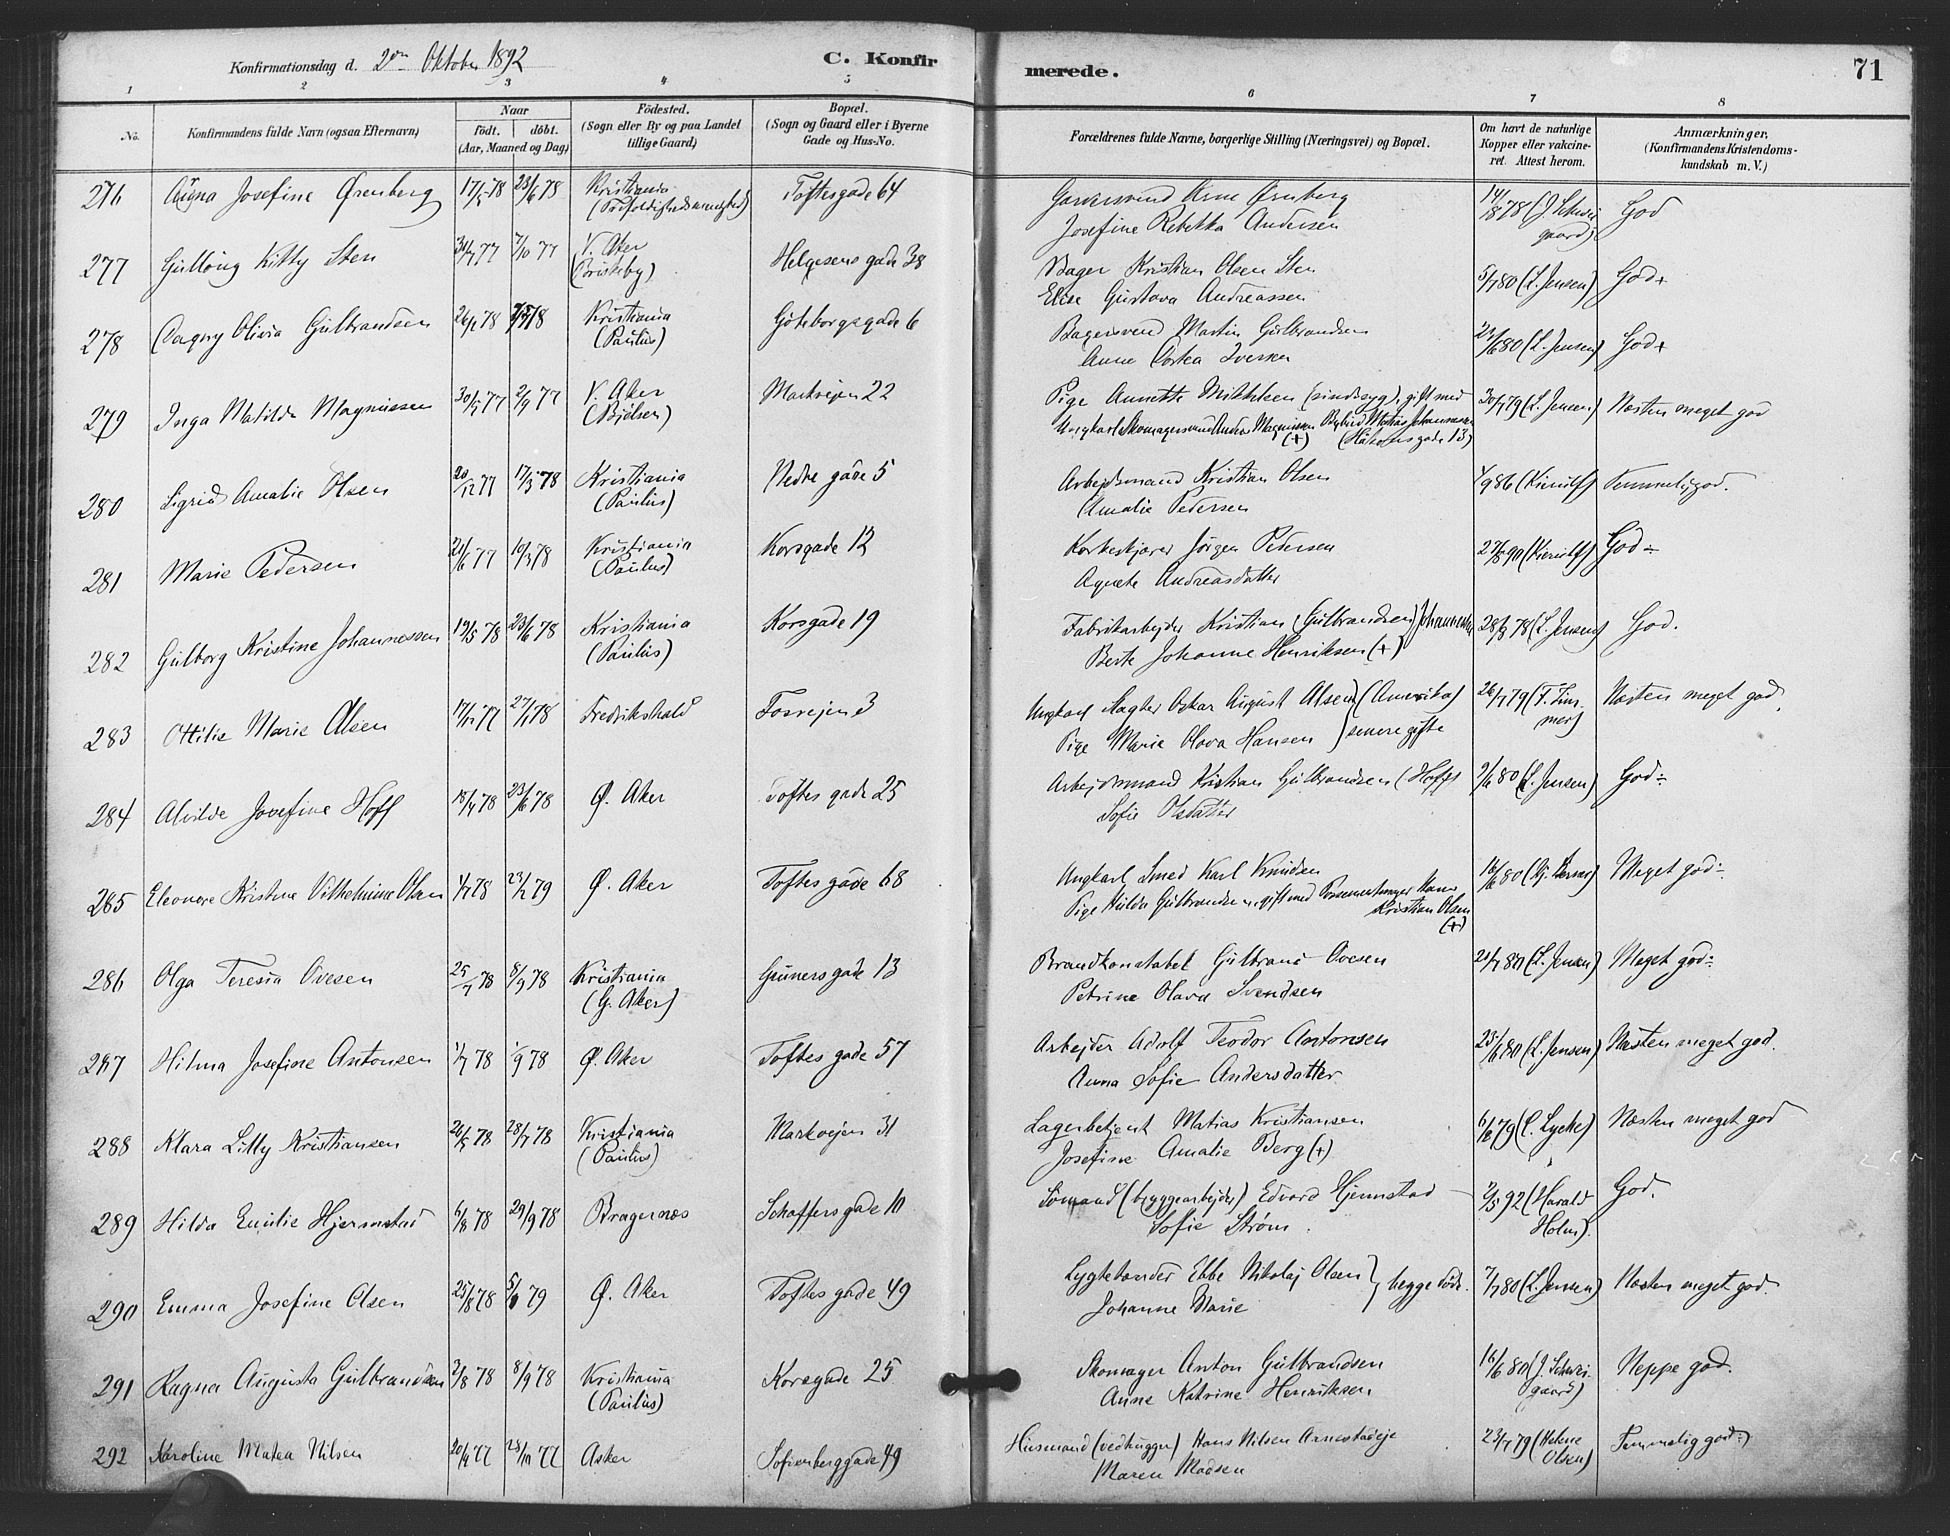 Konfirmationsdag d. 2den Oktober 1892
C. Konfir
merede.
71
1 2 3 4 5 6 7 8
No.
Konfirmandens fulde Navn (ogsaa Efternavn)
Naar
födt. döbt.
(Aar, Maaned og Dag)
Födested.
(Sogn eller By og paa Landet
tillige Gaard)
Bopæl.
(Sogn og Gaard eller i Byerne
Gade og Hus-No.
Forældrenes fulde Navne, borgerlige Stilling (Næringsvei) og Bopæl.
Om havt de naturlige
Kopper eller vakcine-
ret. Attest herom.
Anmærkninger.
(Konfirmandens Kristendoms-
kundskab m. V.)
276 Josefine Ørenberg 17/5 78 23/6 78 Kristiania Toftesgade 64 Garversvend Arne Ørenberg 14/8 78 (J. Schwei God
(Trefoldighedsmenighed) Josefine Rebekka Andersen gaard)
277 Gullaug Kitty Sten 7/10 77 V. Aker Helgesens gade 38 Bager Kristian Olsen Sten 5/7 80 (L. Jensen) God+
(Briskeby) Elise Gustava Andreassen
278 Dagny Olivia Gulbrandsen 78 Kristiania Göteborgsgade 6 Bagersvend Martin Gulbrandsen 80 (L. Jensen) God+
(Paulus) Anne Iversen
279 Inga Matilde Magnussen 30/5 77 2/9 77 V. Aker Markvejen 22 Pige Annette Mikkelsen (sindssyg), gift med 30/7 79 (L. Jensen) Næsten meget god
(Bjölsen) Ungkarl Skomagersvend Magnussen Matias Johannessen
(+) gade 13)
280 Sigrid Amalie Olsen 20/12 77 17/3 78 Kristiania Nedre gade 5 Arbejdsmand Kristian Olsen 4/9 86 (Kierulf) Temmelig god.
(Paulus) Amalie Pedersen
281 Marie Pedersen 21/6 77 10/3 78 Kristiania Korsgade 12 Korkeskjærer Jörgen Pedersen 27/8 90 (Kierulf) God÷
(Paulus) Agnete Andreasdatter
282 Gulborg Kristine Johannessen 19/5 78 23/6 78 Kristiania Korsgade 19 Fabrikarbejder Kristian (Gulbrandsen) Johannessen 28/8 78 (L. Jensen) God.
(Paulus) Berte Johanne Henriksen (+)
283 Ottilie Marie Olsen 77 27/1 78 Fredrikshald Fossvejen 3 Ungkarl Slagter Oskar August Olsen (Amerika) 26/7 79 (F. Næsten meget god.
Pige Marie Olava Hansen } senere gifte
284 Alvilde Josefine Hoff 18/4 78 23/6 78 Ø. Aker Toftes gade 25 Arbejdsmand Kristian Gulbrandsen (Hoff) 9/6 80 (L. Jensen) God÷
Sofie Olsdatter
285 Eleonore Kristine Vilhelmine Olsen 4/7 78 23/2 79 Ø. Aker Toftes gade 68 Ungkarl Smed Karl Knudsen 16/6 80 (Kj. Meget god÷
Pige Hulda Gulbrandsen, gift med Possementmager Hans
Kristian Olsen
(+)
286 Olga Teresia Ovesen 25/7 78 8/9 78 Kristiania Grüners gade 13 Brandkonstabel Gulbrand Ovesen 21/7 80 (L. Jensen) Meget god÷
(G. Aker) Petrine Olava Svendsen
287 Hilma Josefine Antonsen 1/7 78 1/9 78 Ø. Aker Toftes gade 57 Arbejder Adolf Teodor Antonsen 25/6 80 (L. Jensen) Næsten meget god.
Anna Sofie Andersdatter
288 Klara Lilly Kristiansen 26/5 78 28/7 78 Kristiania Markvejen 31 Lagerbetjent Matias Kristiansen 6/8 79 (C. Lycke) Næsten meget god
(Paulus) Josefine Amalie Berg (+)
289 Hilda Emilie Hjermstad 6/8 78 29/9 78 Bragernæs Schaffers gade 10 Sömand (bryggearbejder) Edvard Hjermstad 3/5 92 (Harald God.
Sofie Strøm Holm).
290 Emma Josefine Olsen 25/8 78 79 Ø. Aker Toftes gade 49 Lygtetænder Ebbe Nikolaj Olsen } begge döde. 7/7 80 (L. Jensen) Næsten meget god.
Johanne Marie
291 Ragna Augusta Gulbrandsen 3/8 78 8/9 78 Kristiania Korsgade 25 Skomager Anton Gulbrandsen 16/6 80 (J. Schwei- Neppe god.
(Paulus) Anne Katrine Henriksen gaard)
292 Karoline Matea Nilsen 20/9 77 28/10 77 Asker Sofienberggade 49 Husmand (vedhugger) Hans Nilsen Arnestadeje 23/7 79 (Helene Temmelig god
Maren Madsen Olsen)